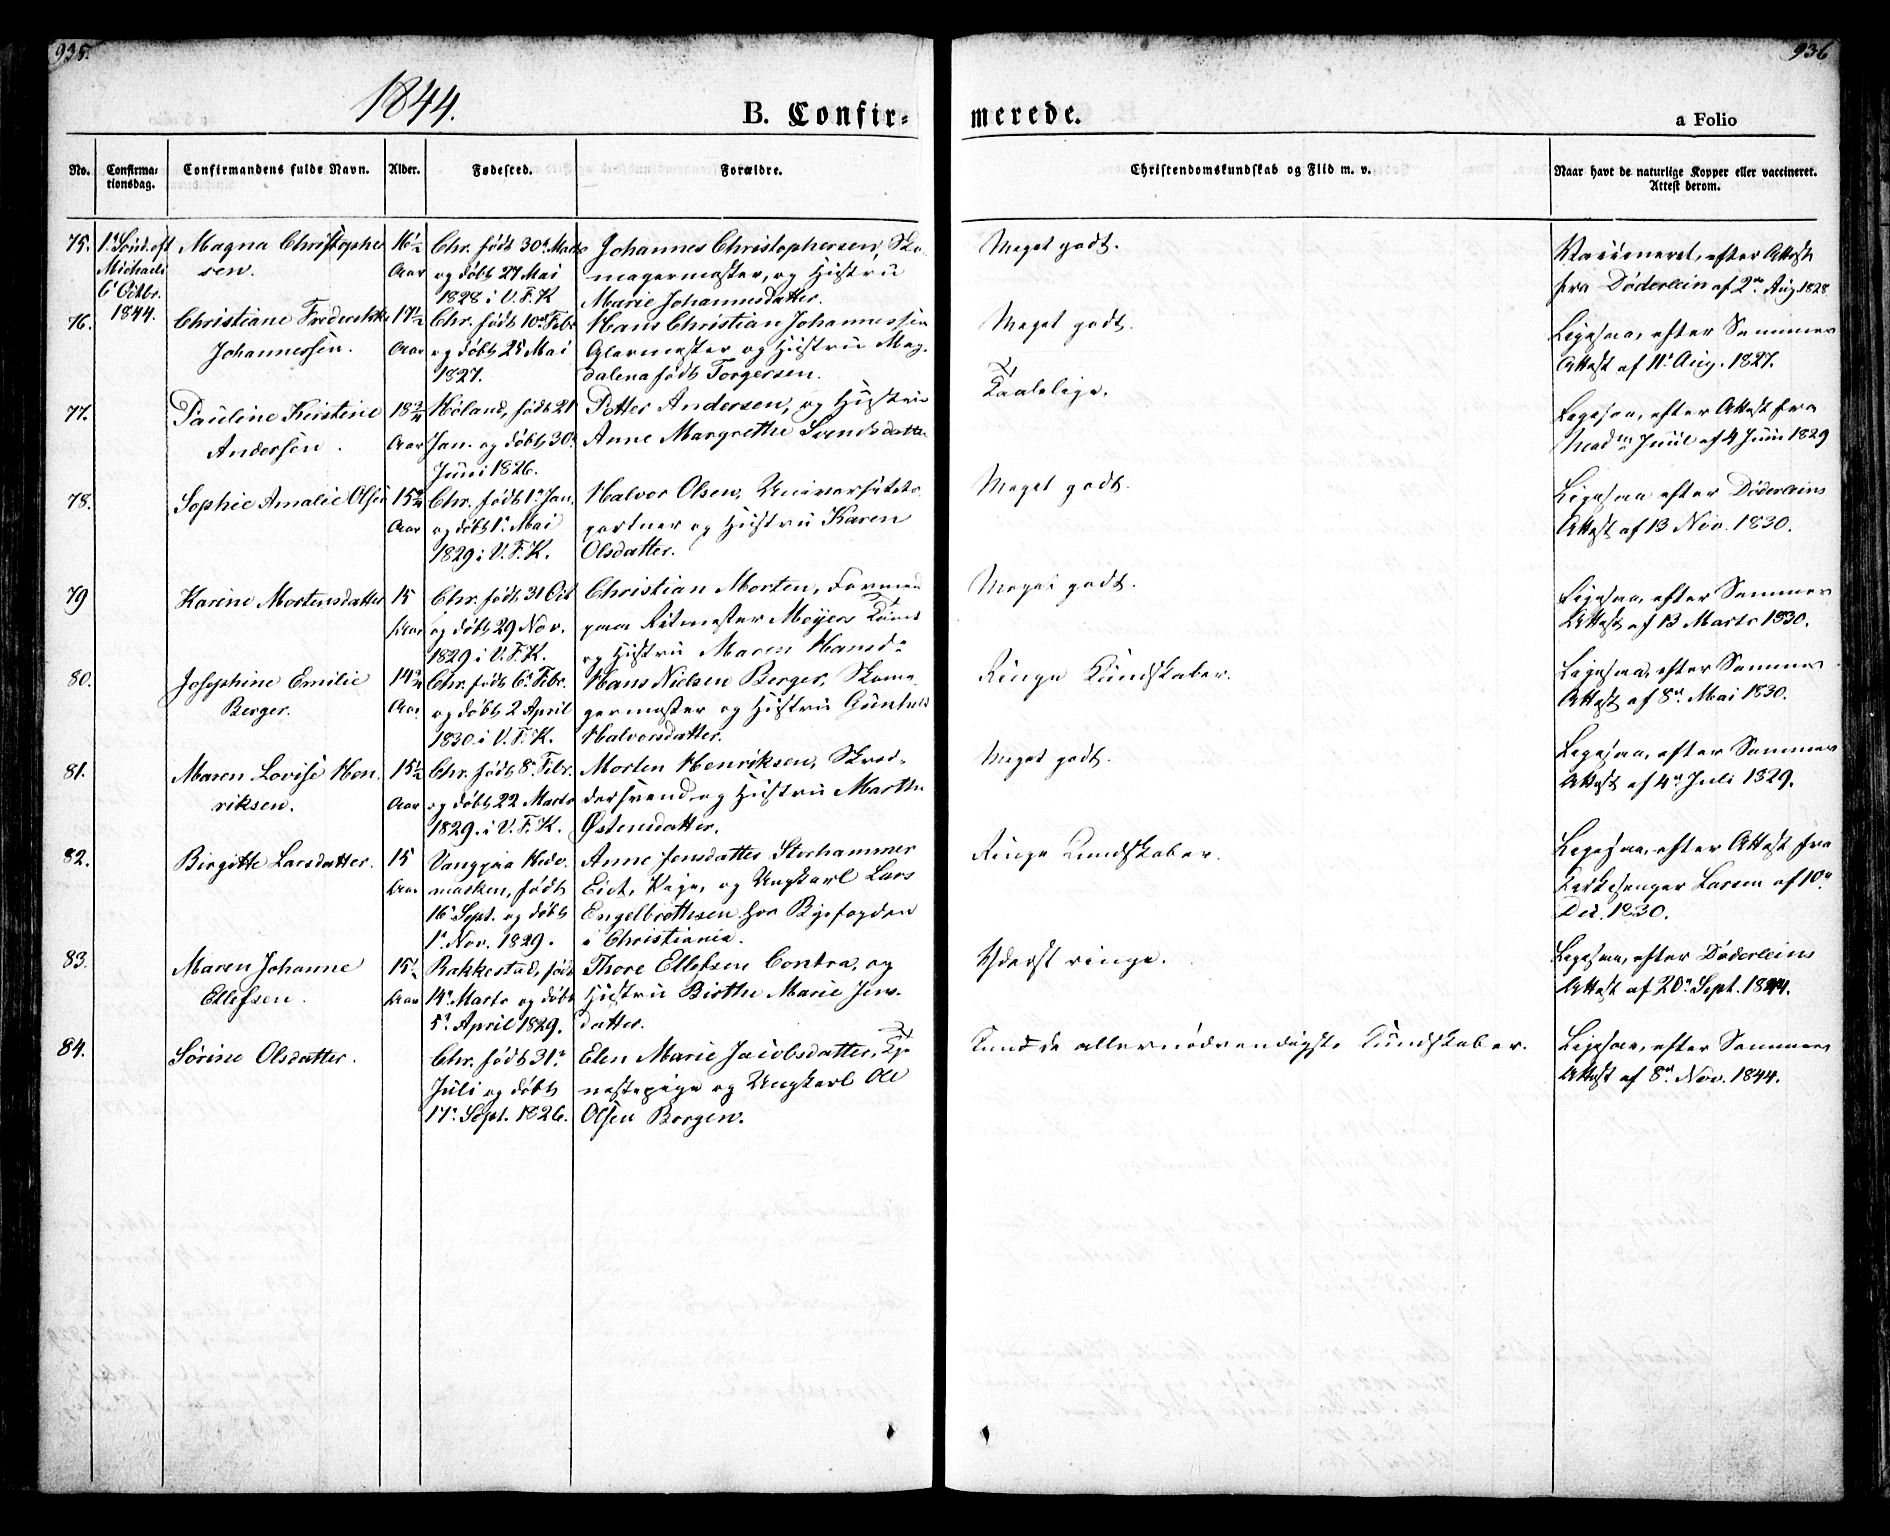 935.
936
1844.
B. Confir-
merede.
a Folio
No.
Confirma-
tionsdag.
Confirmandens fulde Navn.
Alder.
Fødested.
Forældre.
Christendomskundskab og Flid m. v.
Naar havt de naturlige Kopper eller vaccineret.
Attest derom.
75.
1ste Sønd. eft
Michaeli
6te Octbr.
1844.
Magna Christopher
sen.
16½
Aar
Chr. født 30te Marts
og døbt 27 Mai
1828 i V. F. K
Johannes Christophersen, Sko-
magermester, og Hustru
Marie Johannesdatter.
Meget godt.
Vaccineret, efter Attest
fra Døderlein af 2den Aug. 1828.
76.
Christiane Frederikke
Johannessen.
17½
Aar
Chr. født 10de Febr
og døbt 25 Mai
1827.
Hans Christian Johannessen
Glarmester og Hustru Mag-
dalena født Torgersen.
Meget godt.
Ligesaa, efter Sammes
Attest af 11te Aug. 1827.
77.
Pauline Kirstine
Andersen.
18¾
Aar
Høland, født 21
Jan. og døbt 30te
Juni 1826.
Petter Andersen, og Hustru
Anne Margrethe Svendsdatter
Taalelige.
Ligesaa, efter Attest fra
Madm Juul af 4 Juni 1829
78.
Sophie Amalie Olsen
15¾
Aar
Chr. født 1ste Jan.
og døbt 1ste Mai
1829 i V. F. K.
Halvor Olsen, Universitets-
gartner og Hustru Karen
Olsdatter.
Meget godt.
Ligesaa efter Døderleins
Attest af 13 Nov. 1830.
79
Karine Mortensdatter
15
Aar
Chr. født 31 Oct
og døbt 29 Nov.
1829 i V. F. K.
Christian Morten, Formand
paa Ritmester Meyers Tomt
og Hustru Maren Hansd-
Meget godt.
Ligesaa, efter Sammes
Attest af 13 Marts 1830.
80.
Josephine Emilie
Berger.
14¾
Aar
Chr. født 6te Febr.
og døbt 2 April
1830 i V. F. K.
Hans Nielsen Berger, Skoma-
germester og Hustru Gunhild
Halvorsdatter.
Ringe Kundskaber.
Ligesaa, efter Sammes
Attest af 8de Mai 1830.
81.
Maren Lovise Hen-
riksen.
15½
Aar
Chr. født 8de Febr.
og døbt 22 Marts
1829. i V. F. K.
Morten Henriksen, Skræd-
dersvend, og Hustru Marthe
Østensdatter.
Meget godt.
Ligesaa, efter Sammes
Attest af 4de Juli 1829.
82.
Birgitte Larsdatter.
15
Aar
Vang paa Hede-
marken, født
16de Sept. og døbt
1ste Nov. 1829.
Anne Jensdatter Storhammer
Eiet, Pige, og Ungkarl Lars
Engelbrethsen hos Byfogden
i Christiania.
Ringe Kundskaber.
Ligesaa, efter Attest fra
Kirkesanger Larsen af 10de
Dec. 1830.
83.
Maren Johanne
Ellefsen.
15½
Aar
Rakkestad, født
14de Marts og døbt
5te April 1829.
Thore Ellefsen Contra, og
Hustru Birthe Marie Jens-
datter.
Yderst ringe.
Ligesaa, efter Døderleins
Attest af 20de Sept. 1844.
84.
Sørine Olsdatter.
Chr. født 31te
Juli og døbt
17de Sept. 1826.
Elen Marie Jacobsdatter, Tje-
nestepige og Ungkarl Ole
Olsen Borgen.
Kun de allernødvendigste Kundskaber.
Ligesaa, efter Sammes
Attest af 8de Nov. 1844.